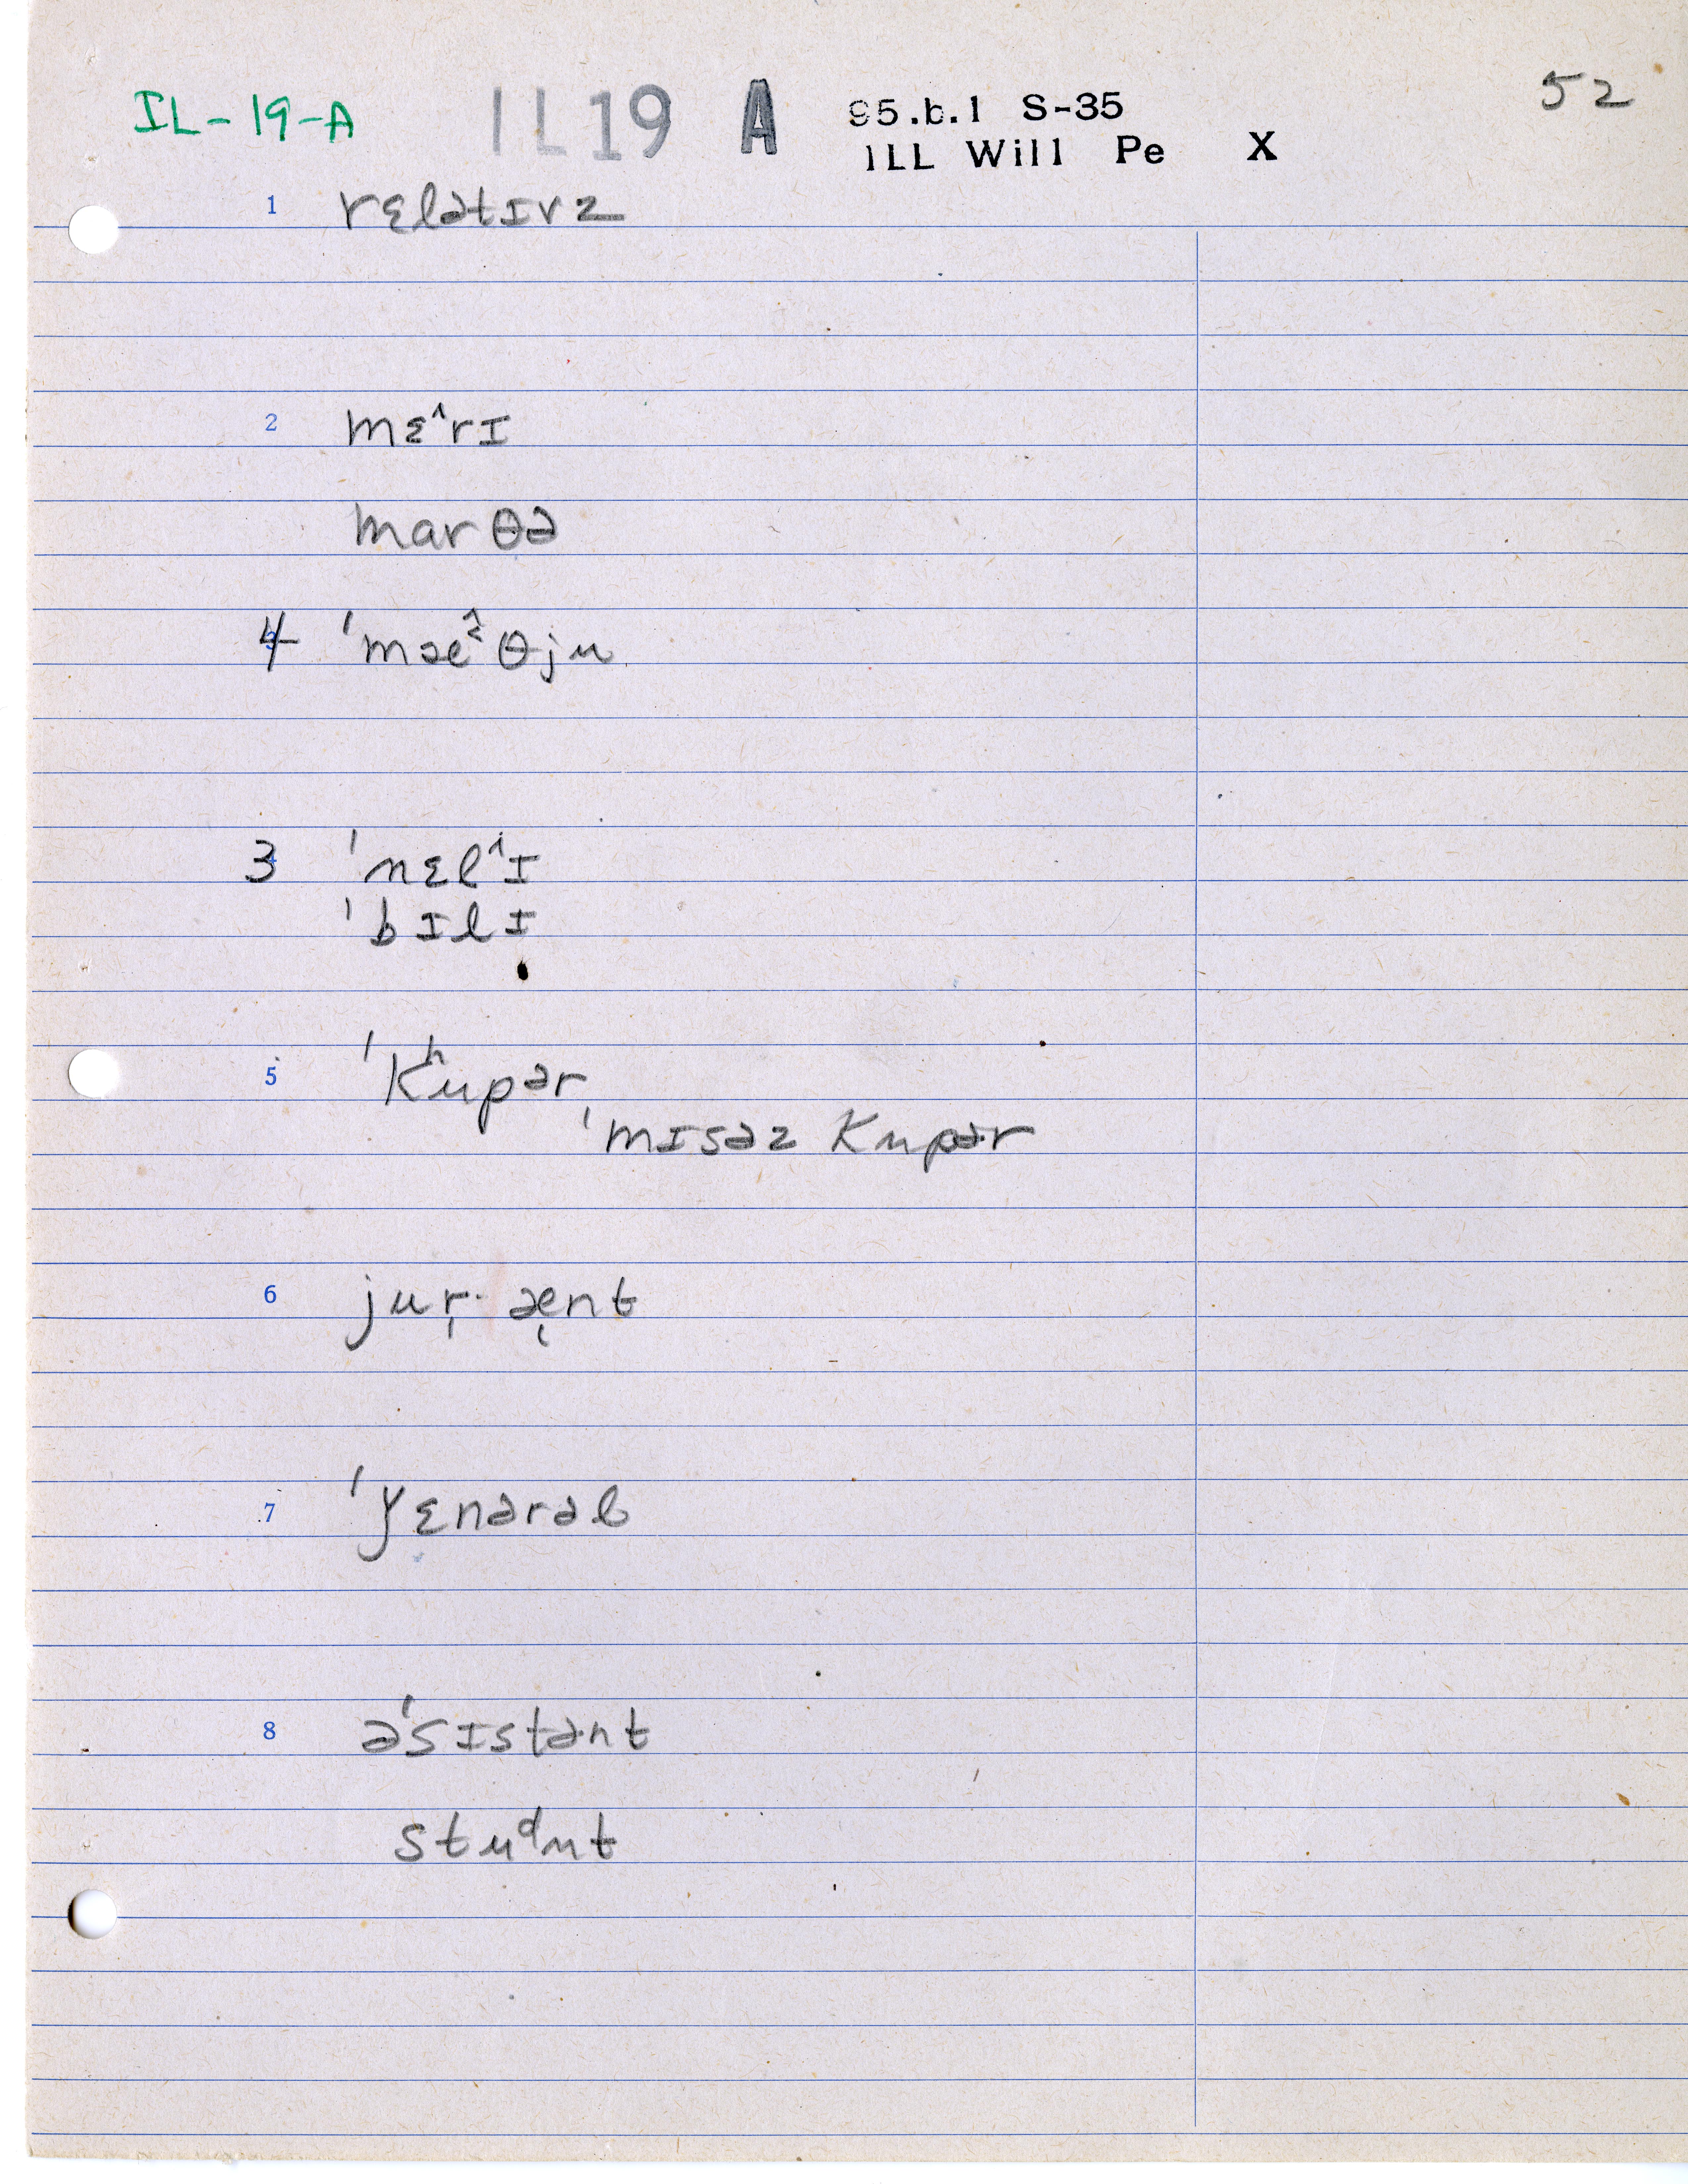 IL-19-A IL19 A 95.b.1 S-35 52
ILL Will Pe X
1 rɛlətɪvz
2 mɛ^rɪ
marθə
4 ˈmæ^ɪθju
3 ˈnɛl^ɪ
ˈbɪlɪ
5 ˈkʰupər,
ˈmɪsəz kupər
6 jur̩· æ̨nt
7 ˈǰɛnərəl
8 əˈsɪstənt
studnt